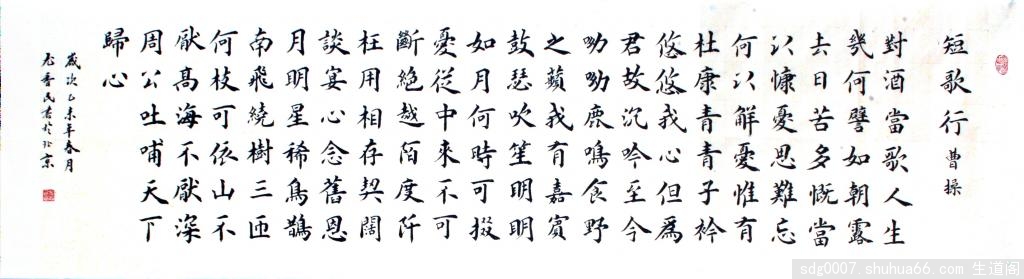 短歌行 曹操
對酒當歌人生
幾何譬如朝露
去日苦多慨當
以慷憂思難忘
何以解憂惟有
杜康青青子衿
悠悠我心但為
君故沉吟至今
呦呦鹿鳴食野
之蘋我有嘉賓
鼓瑟吹笙明明
如月何時可掇
憂從中來不可
斷絕越陌度阡
枉用相存契闊
談宴心念舊恩
月明星稀烏鵲
南飛繞樹三匝
何枝可依山不
厭高海不厭深
周公吐哺天下
歸心
歲次乙未年春月
民書於北京
sdg0007.shuhua66.com 生道阁